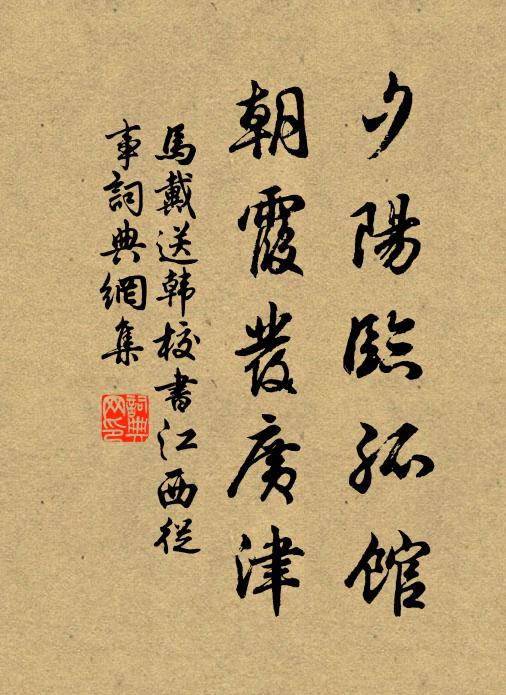 夕陽臨孤館
朝霞發廣津
馬戴送韩校書江西從
事詞典網集
詞典網印